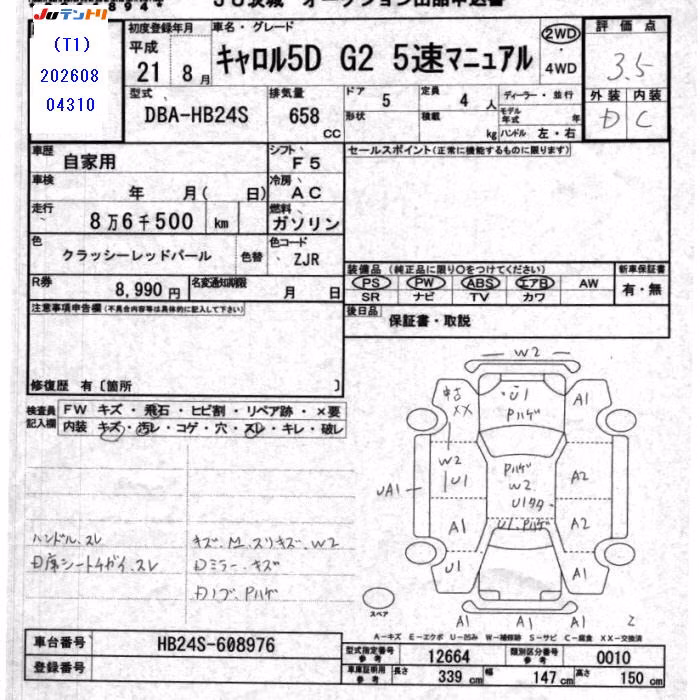 JU茨城 オークション出品申込書
JUテントリ
(T1)
202608
04310
初度登録年月
平成
21 8月
車名・グレード
キャロル5D G2 5速マニュアル
2WD
・
4WD
評価点
3.5
外装 内装
D C
型式
DBA-HB24S
排気量
658
CC
ドア
5
定員
4人
形状
積載
kg
ディーラー・並行
モデル年式 年
ハンドル 左・右
車歴
自家用
シフト
F5
セールスポイント(正常に機能するものに限ります)
車検
年 月( 日)
冷房
AC
走行
8万6千500 km
燃料
ガソリン
色
クラッシーレッドパール
色替
色コード
ZJR
R券
8,990円
名変通知期限
月 日
装備品(純正品に限り○をつけてください)
PS PW ABS エアB AW
SR ナビ TV カワ
新車保証書
有・無
後日品
保証書・取説
注意事項申告欄(不具合内容等は具体的に記入して下さい)
修復歴 有〔箇所 〕
検査員記入欄
FW キズ・飛石・ヒビ割・リペア跡・×要
内装 キズ・汚レ・コゲ・穴・スレ・キレ・破レ
ハンドル、スレ
D席シートチガイ、スレ
キズ、M、スリキズ、W2
Dミラー、キズ
Dノブ、Pハゲ
W2
中古
XX
U1
Pハゲ
A1
W2
U1
Pハゲ
W2
U1タタ
A2
UA1
A1
U1、Pハゲ
A2
U1
A1
A1
A1
A1
2
スペア
A-キズ E-エクボ U-凹み W-補修跡 S-サビ C-腐食 XX-交換済
車台番号
HB24S-608976
登録番号
型式指定番号
参考
12664
類別区分番号
参考
0010
車庫証明用
参考
長さ
339 cm
幅
147 cm
高さ
150 cm